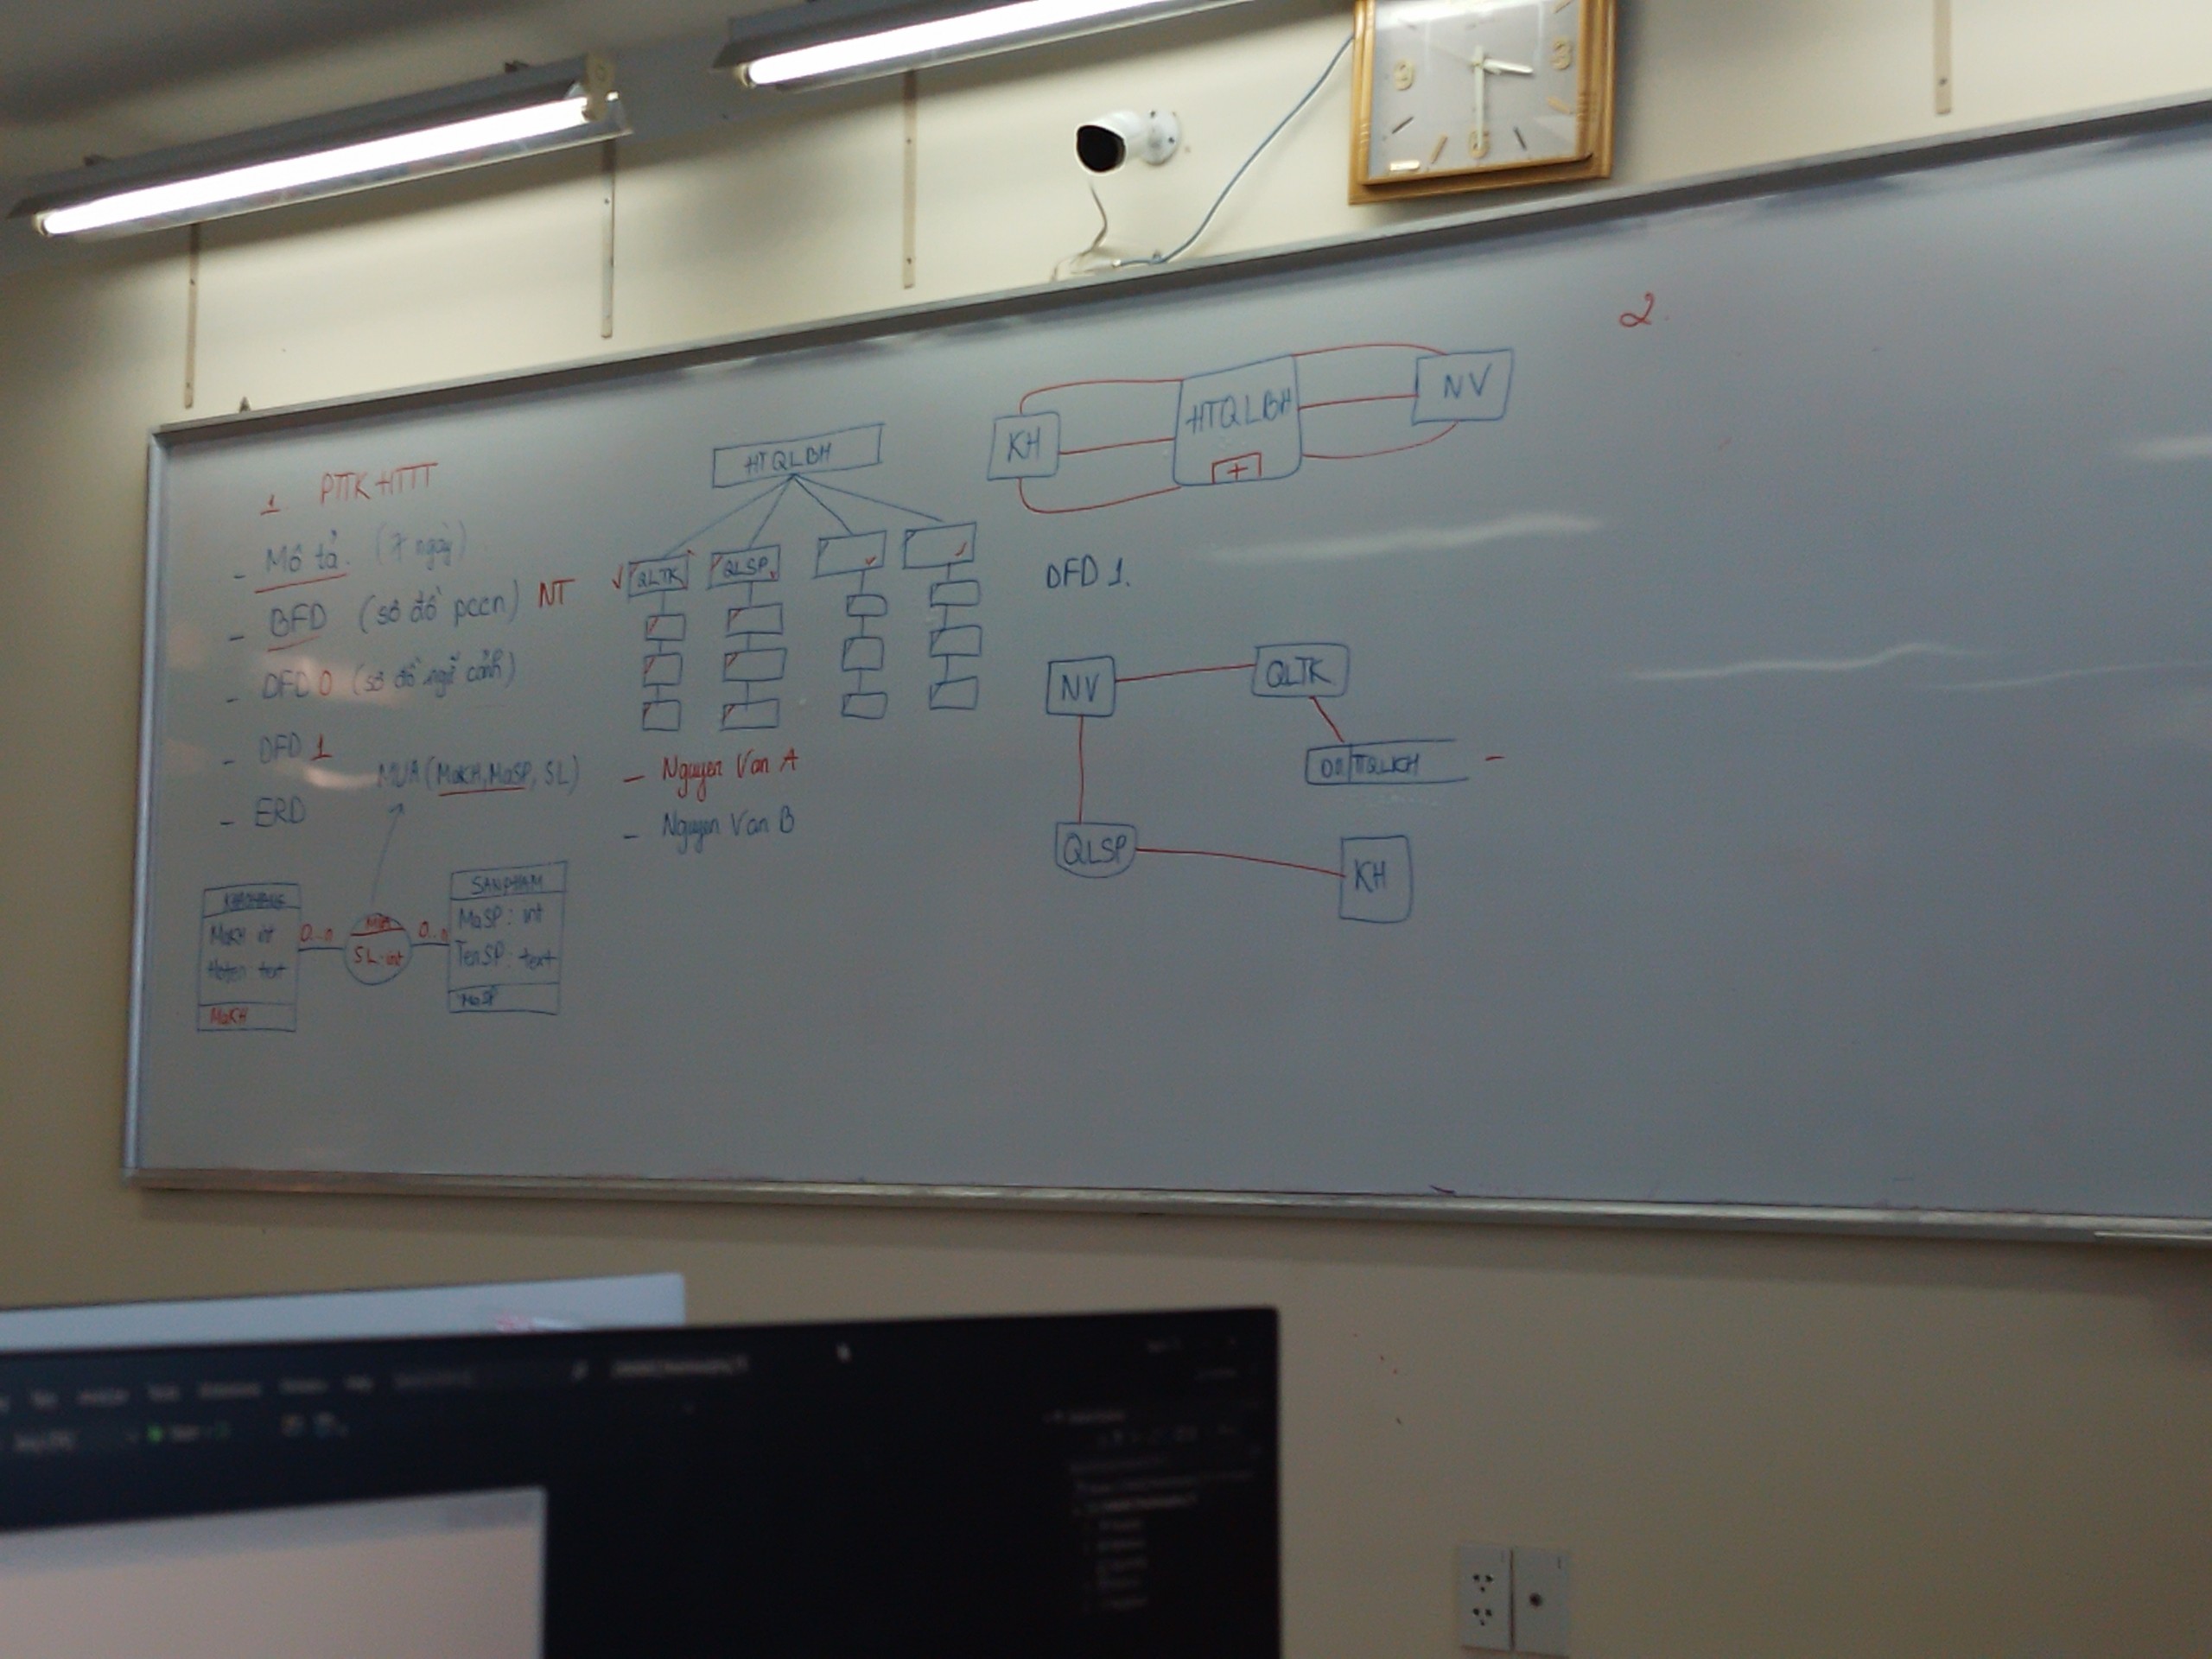 1 PTTK HTTT
- Mô tả. (7 ngày)
- BFD (sơ đồ pccn) NT
- DFD 0 (sơ đồ ngữ cảnh)
- DFD 1
MUA(MaKH, MaSP, SL)
- ERD
MaKH int
Hoten text
MaKH
0..n
MUA
SL: int
0..n
SANPHAM
MaSP: int
TenSP: text
MaSP
HTQLBH
QLTK
QLSP
- Nguyen Van A
- Nguyen Van B
KH
HTQLBH
+
NV
DFD 1.
NV
QLTK
QLSP
KH
2
9
3
6